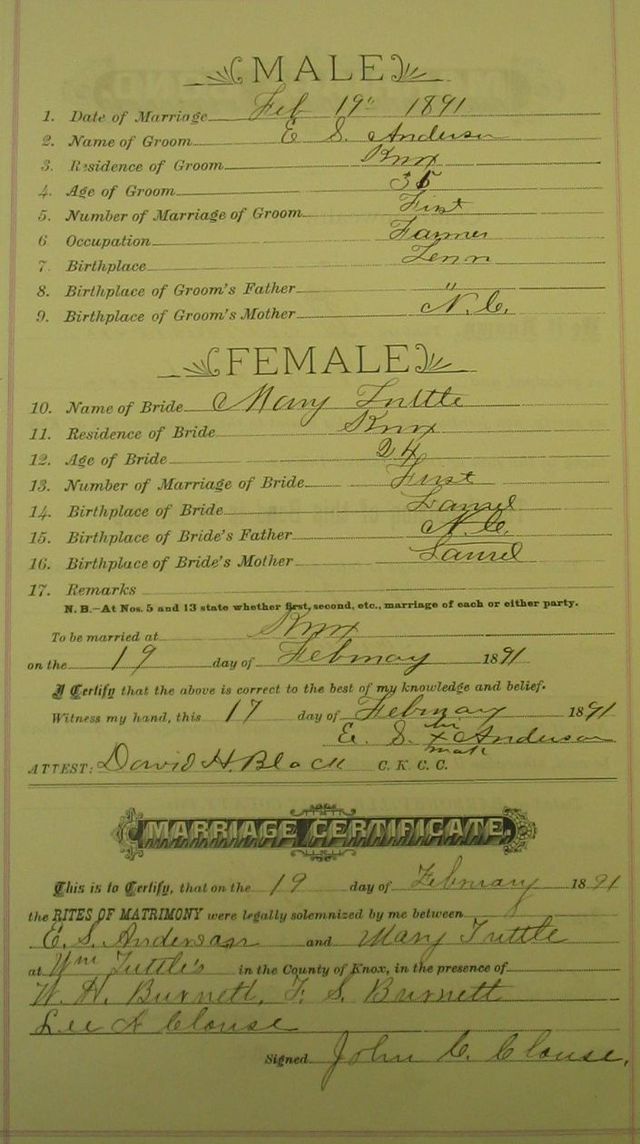 MALE
1. Date of Marriage Feb 19" 1891
2. Name of Groom E S. Anderson
3. Residence of Groom Knox
4. Age of Groom 35
5. Number of Marriage of Groom First
6 Occupation Farmer
7 Birthplace Tenn
8. Birthplace of Groom's Father "
9. Birthplace of Groom's Mother N.C.
FEMALE
10. Name of Bride Mary Tuttle
11. Residence of Bride Knox
12. Age of Bride 24
13. Number of Marriage of Bride First
14. Birthplace of Bride Laurel
15. Birthplace of Bride's Father N.C.
16. Birthplace of Bride's Mother Laurel
17. Remarks
N.B.—At Nos. 5 and 13 state whether first, second, etc., marriage of each or either party.
To be married at Knox
on the 19 day of February 1891
I Certify that the above is correct to the best of my knowledge and belief.
Witness my hand, this 17 day of February 1891
E. S. his x mark Anderson
ATTEST: David H. Black C. K. C. C.
MARRIAGE CERTIFICATE.
This is to Certify, that on the 19 day of February 1891
the RITES OF MATRIMONY were legally solemnized by me between
E. S. Anderson and Mary Tuttle
at Wm Tuttle's in the County of Knox, in the presence of
W. H. Burnett, F. S. Burnett
Lee A Clouse
Signed John C. Clouse.